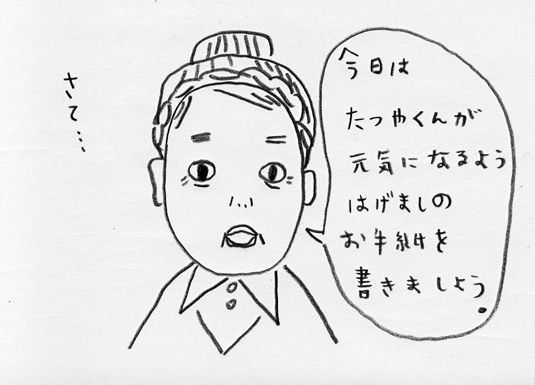 さて…
今日は
たつやくんが
元気になるよう
はげましの
お手紙を
書きましょう。